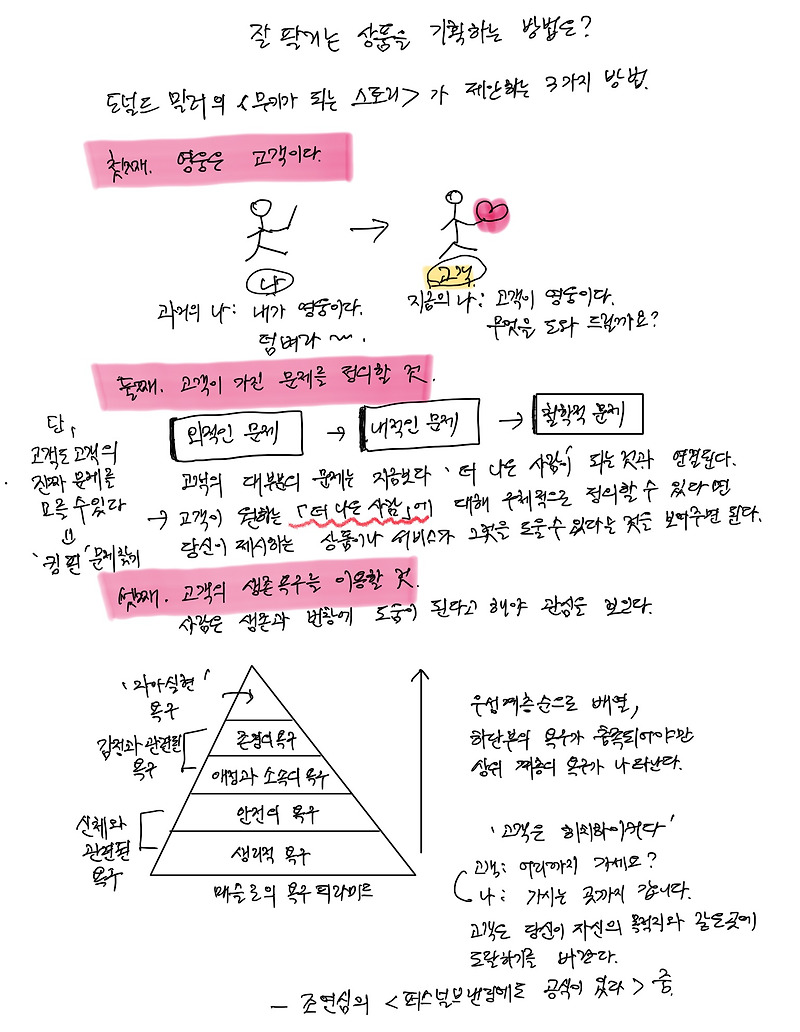 잘 팔기는 상품을 기획하는 방법은?
도널드 밀러의 <무기가 되는 스토리>가 제안하는 3가지 방법.
첫째. 영웅은 고객이다.
나
고객
과거의 나: 내가 영웅이다.
덤벼라 ~~.
지금의 나: 고객이 영웅이다.
무엇을 도와 드릴까요?
둘째. 고객이 가진 문제를 정의할 것.
외적인 문제 → 내적인 문제 → 철학적 문제
단,
고객도 고객의
진짜 문제를
모를 수 있다
'킹핀' 문제찾기
고객의 대부분의 문제는 지금보다 '더 나은 사람이' 되는 것과 연결된다.
→ 고객이 원하는 「더 나은 사람」에 대해 구체적으로 정의할 수 있다면
당신이 제시하는 상품이나 서비스가 그것을 도울 수 있다는 것을 보여주면 된다.
셋째. 고객의 생존 욕구를 이용할 것.
사람은 생존과 번창에 도움이 된다고 해야 관심을 보인다.
'자아실현'
욕구
감정과 관련된
욕구
존경의 욕구
애정과 소속의 욕구
신체와
관련된
욕구
안전의 욕구
생리적 욕구
매슬로의 욕구 피라미드
우선계층순으로 배열,
하단부의 욕구가 충족되어야만
상위 계층의 욕구가 나타난다.
'고객은 히치하이커다'
고객: 어디까지 가세요?
나: 가시는 곳까지 갑니다.
고객은 당신이 자신의 목적지와 같은 곳에
도달하기를 바란다.
— 조연심의 <퍼스널브랜딩에도 공식이 있다> 중